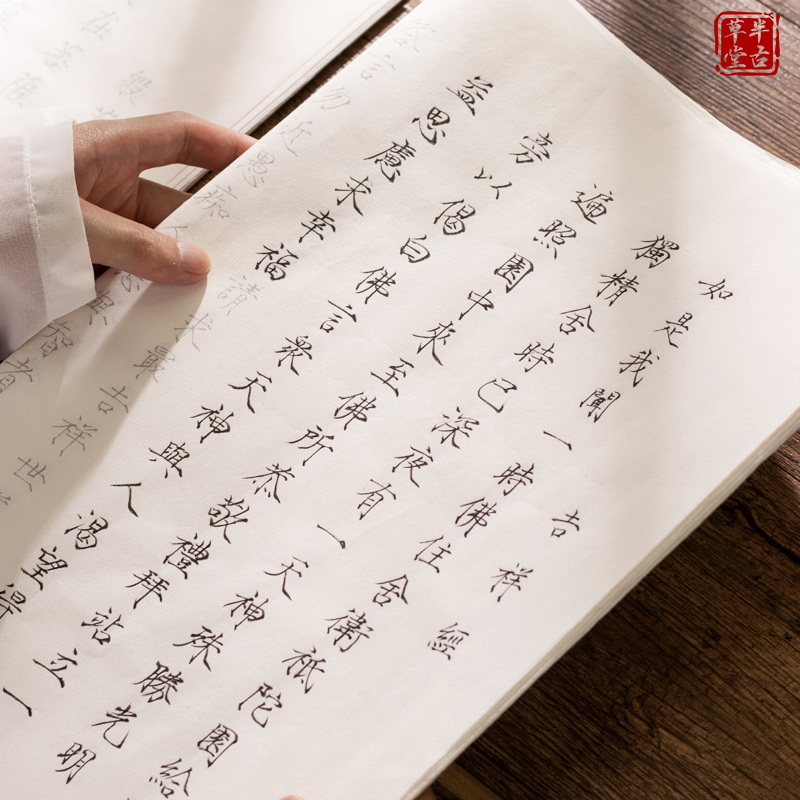 吉祥經
如是我聞一時佛住舍衛祇陀園給
獨精舍時已深夜有一天神殊勝光明
遍照園中來至佛所恭敬禮拜站立一
旁以偈白佛言眾天神與人渴望得
益思慮求幸福請求最吉祥世
答言勿近愚痴人應與智者
半古草堂